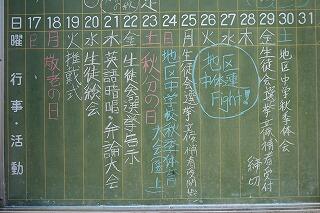 日 17 18 19 20 21 22 23 24 25 26 27 28 29 30 31
曜 日 月 火 水 木 金 土 日 月 火 水 木 金 土
行事・活動
敬老の日
推戴式
生徒総会
英語暗唱・弁論大会
生徒会選挙告示
秋分の日
地区中学校秋季体育大会(陸上)
生徒会選挙立候補者受付開始
地区中体連
Fight!!
生徒会選挙立候補者受付
締切
地区中学秋季体会